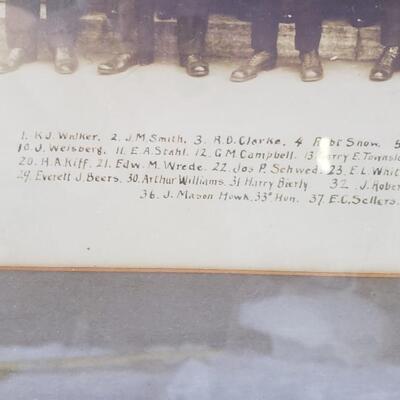 1. K.J. Walker. 2. J.M. Smith. 3. R.D. Clarke. 4 Robt Snow. 5
10. J. Weisberg. 11. E.A. Stahl. 12. G.M. Campbell. 13. Harry E. Townsl
20. H.A. Kiff. 21. Edw. M. Wrede. 22. Jos P. Schwed. 23. E.L. Whit
29. Everett J. Beers. 30. Arthur Williams. 31 Harry Bierly 32. J. Rober
36. J. Mason Hawk, 33° Hon. 37. E.C. Sellers.